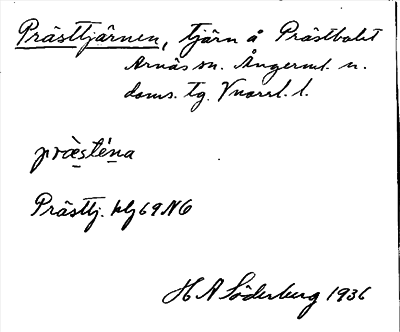 Prästtjärnen, tjärn å Prästbolet
Arnäs sn. Ångerml. n.
doms. tg. Vnorrl. l.
præstéṇa
Prästtj. blj 69 NO
H A Söderberg 1936